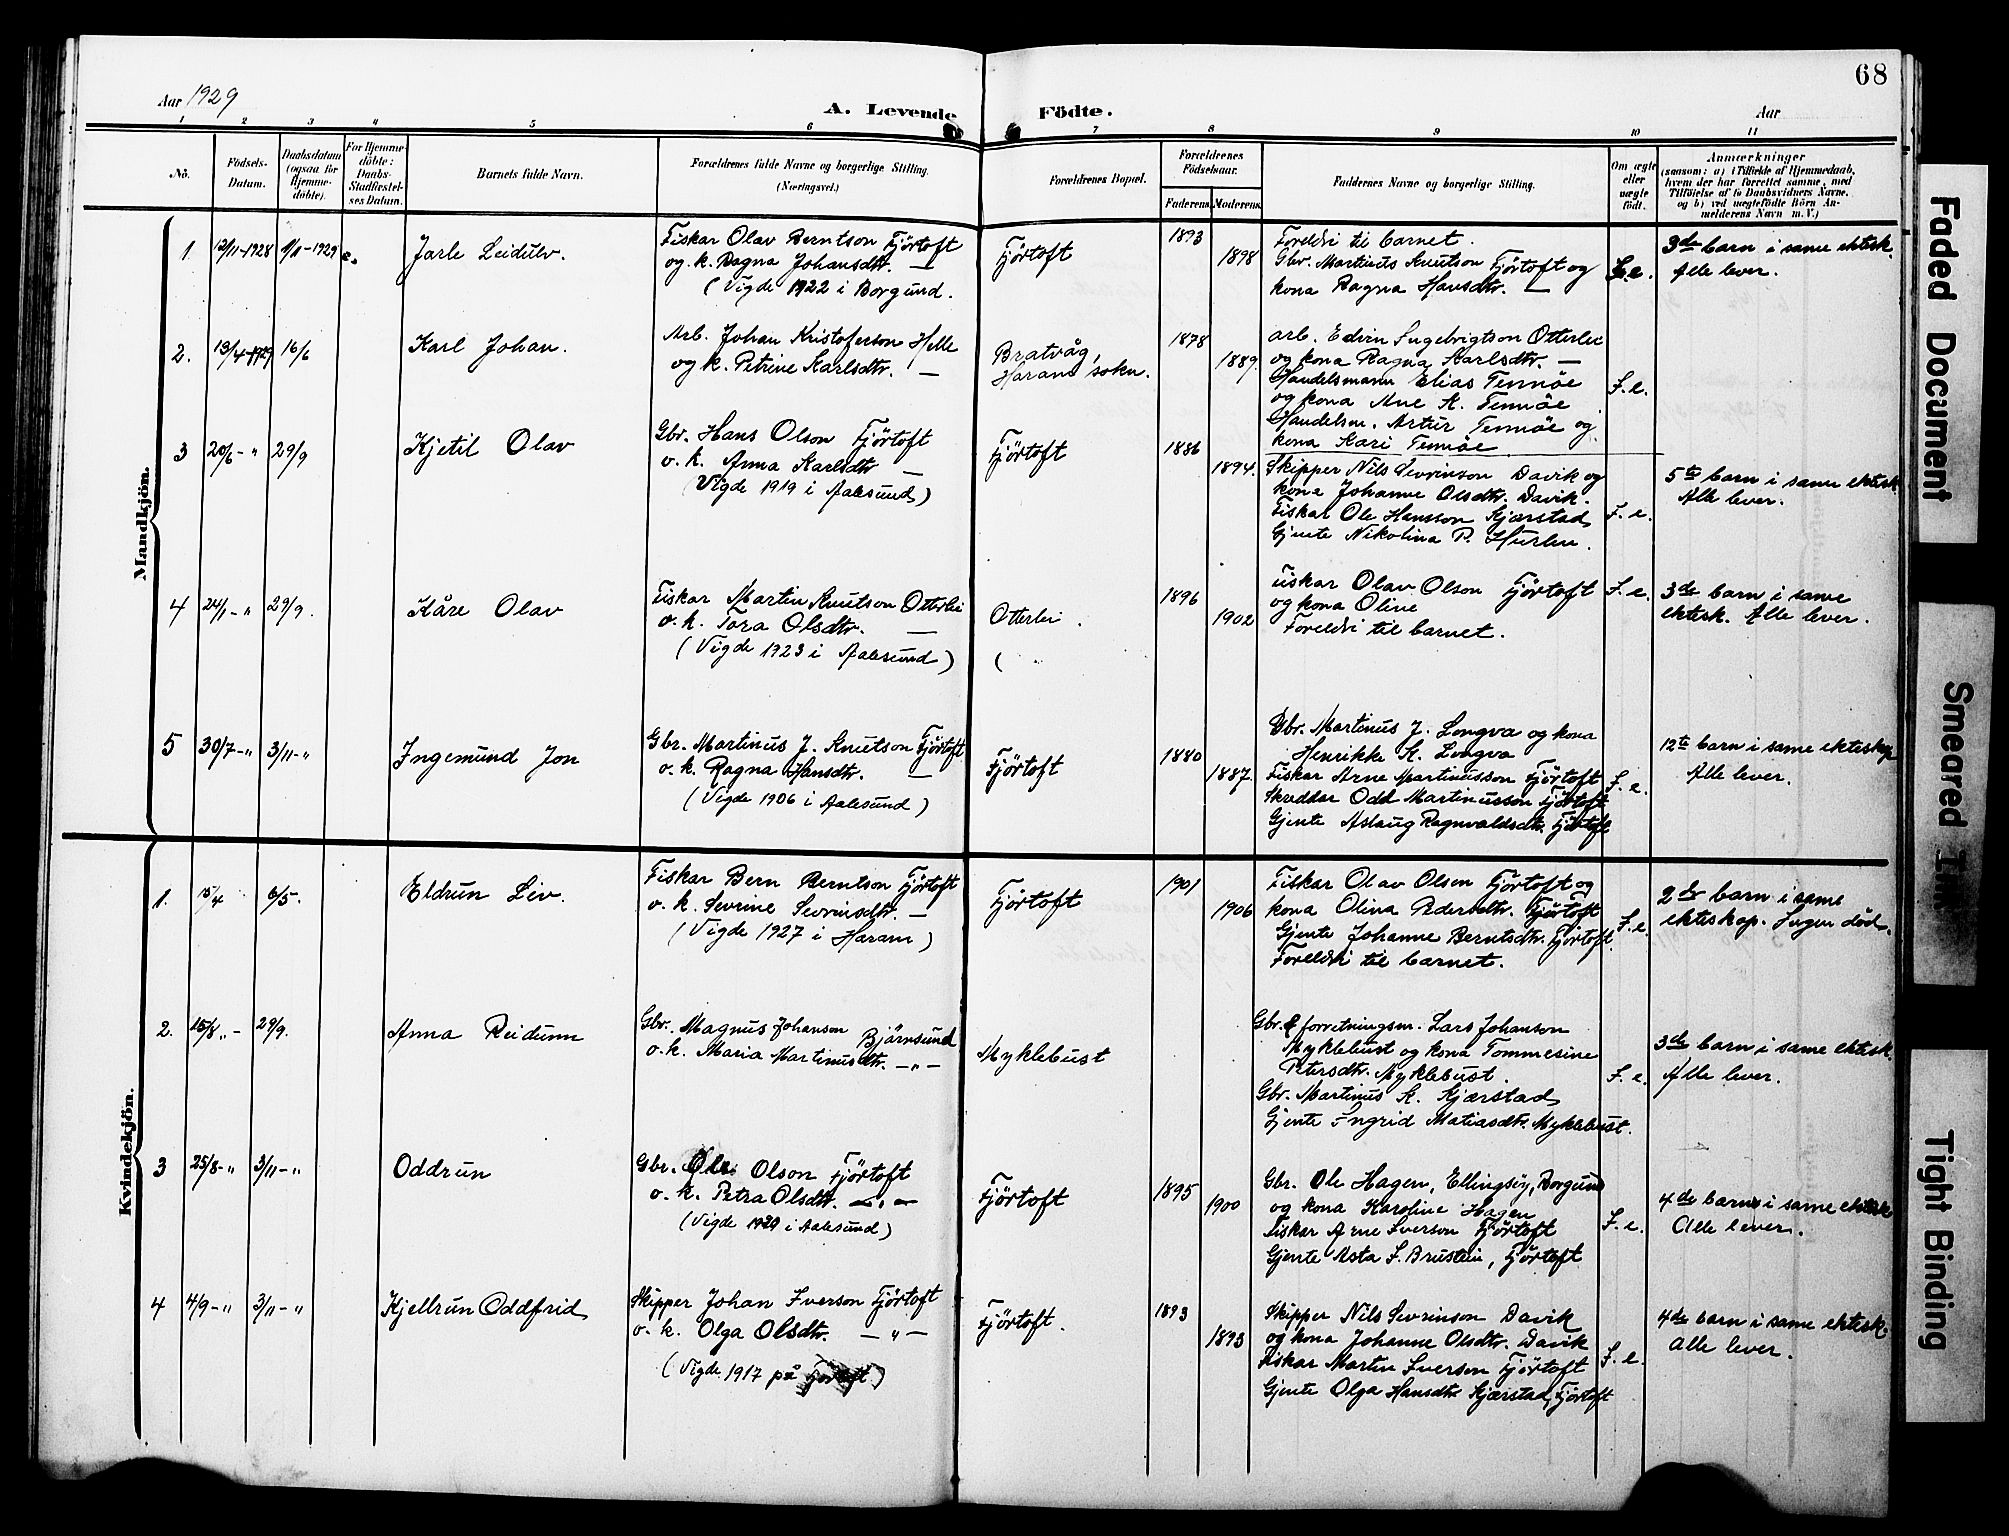 68
Aar 1929
A. Levende
Födte.
Aar
1 2 3 4 5 6 7 8 9 10 11
No.
Födsels-
Datum.
Daabsdatum
(ogsaa for
Hjemme-
döbte).
For Hjemme-
döbte:
Daabs-
Stadfæstel-
ses Datum.
Barnets fulde Navn.
Forældrenes fulde Navne og borgerlige Stilling.
(Næringsvei.)
Forældrenes Bopæl.
Forældrenes
Födselsaar.
Faderens.
Moderens.
Faddernes Navne og borgerlige Stilling.
Om ægte
eller
uægte
födt.
Anmærkninger
(saasom: a) i Tilfælde af Hjemmedaab,
hvem der har forrettet samme, med
Tilföielse af to Daabsvidners Navne.
og b) ved uægtefödte Börn An-
melderens Navn m. V.)
Mandkjön.
1. 12/11-1928 1/11-1929 Jarle Leidulv.
Fiskar Olav Berntson Fjörtoft
og k. Ragna Johansdtr. —
(Vigde 1922 i Borgund.
Fjörtoft
1893
1898
Foreldri til barnet.
Gbr. Martinus Knutson Fjörtoft og
kona Ragna Hansdtr. —
F. e.
3de barn i same ektesk.
Alle lever.
2. 13/4-1929 16/6 Karl Johan.
Arb. Johan Kristoferson Helle
og k. Petrine Karlsdtr. —
Bratvåg,
Harams sokn.
1878
1889.
arb. Edvin Ingebrigtson Otterlei
og kona Ragna Karlsdtr. —
Handelsmann Elias Tennöe
og kona Ane K. Tennöe
Handelsm. Artur Tennöe og
kona Kari Tennöe
F. e.
3 20/6-" 29/9 Kjetil Olav
Gbr. Hans Olson Fjörtoft
o. k. Anna Karlsdtr —
(Vigde 1919 i Aalesund)
Fjörtoft
1886
1894.
Skipper Nils Sevrinson Davik og
kona Johanne Olsdtr. Davik.
Fiskar Ole Hansson Kjærstad
Gjente Nikolina P. Hurlen.
F. e.
5te barn i same ektesk
Alle lever.
4 24/1-" 29/9. Kåre Olav
Fiskar Martin Knutson Otterlei
o. k. Tora Olsdtr. —
(Vigde 1923 i Aalesund)
Otterlei.
(
1896
1902
Fiskar Olav Olson Fjörtoft
og kona Oline
Foreldri til barnet.
F. e.
3de barn i same
ektesk. Alle lever.
5 30/7-" 3/11-" Ingemund Jon
Gbr. Martinus J. Knutson Fjörtoft
o. k. Ragna Hansdtr. —
(Vigde 1906 i Aalesund)
Fjörtoft
1880
1887
Gbr. Martinus J. Longva og kona
Henrikke K. Longva
Fiskar Arne Martinusson Fjörtoft
Skreddar Odd Martinusson Fjörtoft
Gjente Aslaug Ragnvaldsdtr. Fjörtoft
F. e.
12te barn i same ekteskap
Alle lever.
Kvindekjön.
1. 15/4 6/5. Eldrun Liv.
Fiskar Bern Berntson Fjörtoft
o. k. Sevrine Sevrinsdtr. —
(Vigde 1927 i Haram)
Fjörtoft
1901
1906
Fiskar Olav Olsen Fjörtoft og
kona Olina Pedersdtr. Fjörtoft
Gjente Johanne Berntsdtr. Fjörtoft.
Foreldri til barnet.
F. e.
2dre barn i same
ekteskap. Ingen död.
2. 15/8 "- 29/9. Anna Reidunn
Gbr. Magnus Johanson Bjørnsund
o. k. Maria Martinusdtr. —"—
Myklebust
Gbr. & forretningsm. Lars Johanson
Myklebust og kona Tommesine
Petersdtr. Myklebust.
Gbr. Martinus K. Kjærstad
Gjente Ingrid Matiasdtr. Myklebust.
F. e.
3de barn i same ektesk.
Alle lever.
3 25/8-" 3/11-" Oddrun
Gbr. Ole Olson Fjörtoft
o. k. Petra Olsdtr. —"—
(Vigde 1920 i Aalesund)
Fjörtoft
1895
1900
Gbr. Ole Hagen, Ellingsöy, Borgund
og kona Karoline Hagen
Fiskar Arne Iverson Fjörtoft
Gjente Asta S. Brustein, Fjörtoft
F. e.
4de barn i same ektesk
Alle lever.
4 4/9-" 3/11-" Kjellrun Oddfrid
Skipper Johan Iverson Fjörtoft
o. k. Olga Olsdtr. —"—
(Vigde 1917 på Fjörtoft)
Fjörtoft.
1893
1893
Skipper Nils Sevrinson Davik
og kona Johanne Olsdtr. Davik
Fiskar Martin Iversen Fjörtoft
Gjente Olga Hansdtr Kjærstad, Fjörtoft
F. e.
4de barn i same ektesk.
Alle lever.
Faded Document
Smeared Ink
Tight Binding